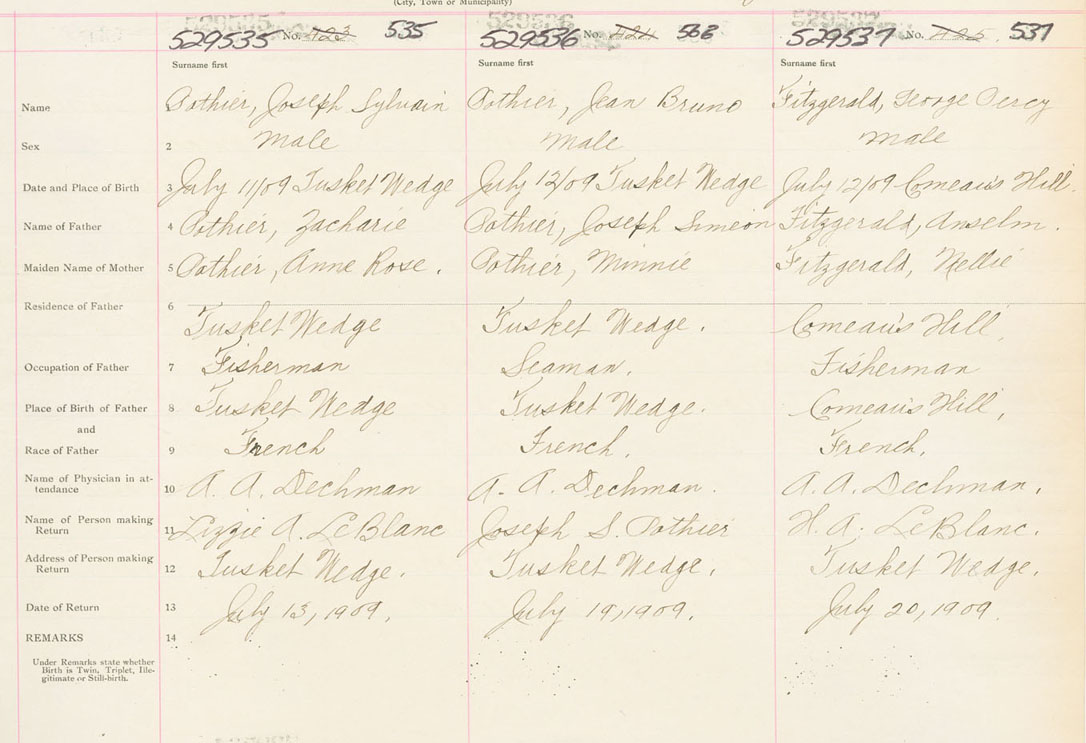 (City, Town or Municipality)
529535 No. 423 535
529536 No. 424 536
529537 No. 425 537
Surname first Surname first Surname first
Name 1 Pothier, Joseph Sylvain Pothier, Jean Bruno Fitzgerald, George Percy
Sex 2 Male Male Male
Date and Place of Birth 3 July 11/09 Tusket Wedge July 12/09 Tusket Wedge July 12/09 Comeau's Hill.
Name of Father 4 Pothier, Zacharie Pothier, Joseph Simeon Fitzgerald, Anselm.
Maiden Name of Mother 5 Pothier, Anne Rose. Pothier, Minnie Fitzgerald, Nellie
Residence of Father 6 Tusket Wedge Tusket Wedge. Comeau's Hill,
Occupation of Father 7 Fisherman Seaman. Fisherman
Place of Birth of Father 8 Tusket Wedge Tusket Wedge. Comeau's Hill,
and
Race of Father 9 French French. French.
Name of Physician in at-
tendance 10 A. A. Dechman A. A. Dechman. A. A. Dechman.
Name of Person making
Return 11 Lizzie A. LeBlanc Joseph S. Pothier H. A. LeBlanc.
Address of Person making
Return 12 Tusket Wedge. Tusket Wedge. Tusket Wedge.
Date of Return 13 July 13, 1909. July 19, 1909. July 20, 1909.
REMARKS 14
Under Remarks state whether
Birth is Twin, Triplet, Ille-
gitimate or Still-birth.